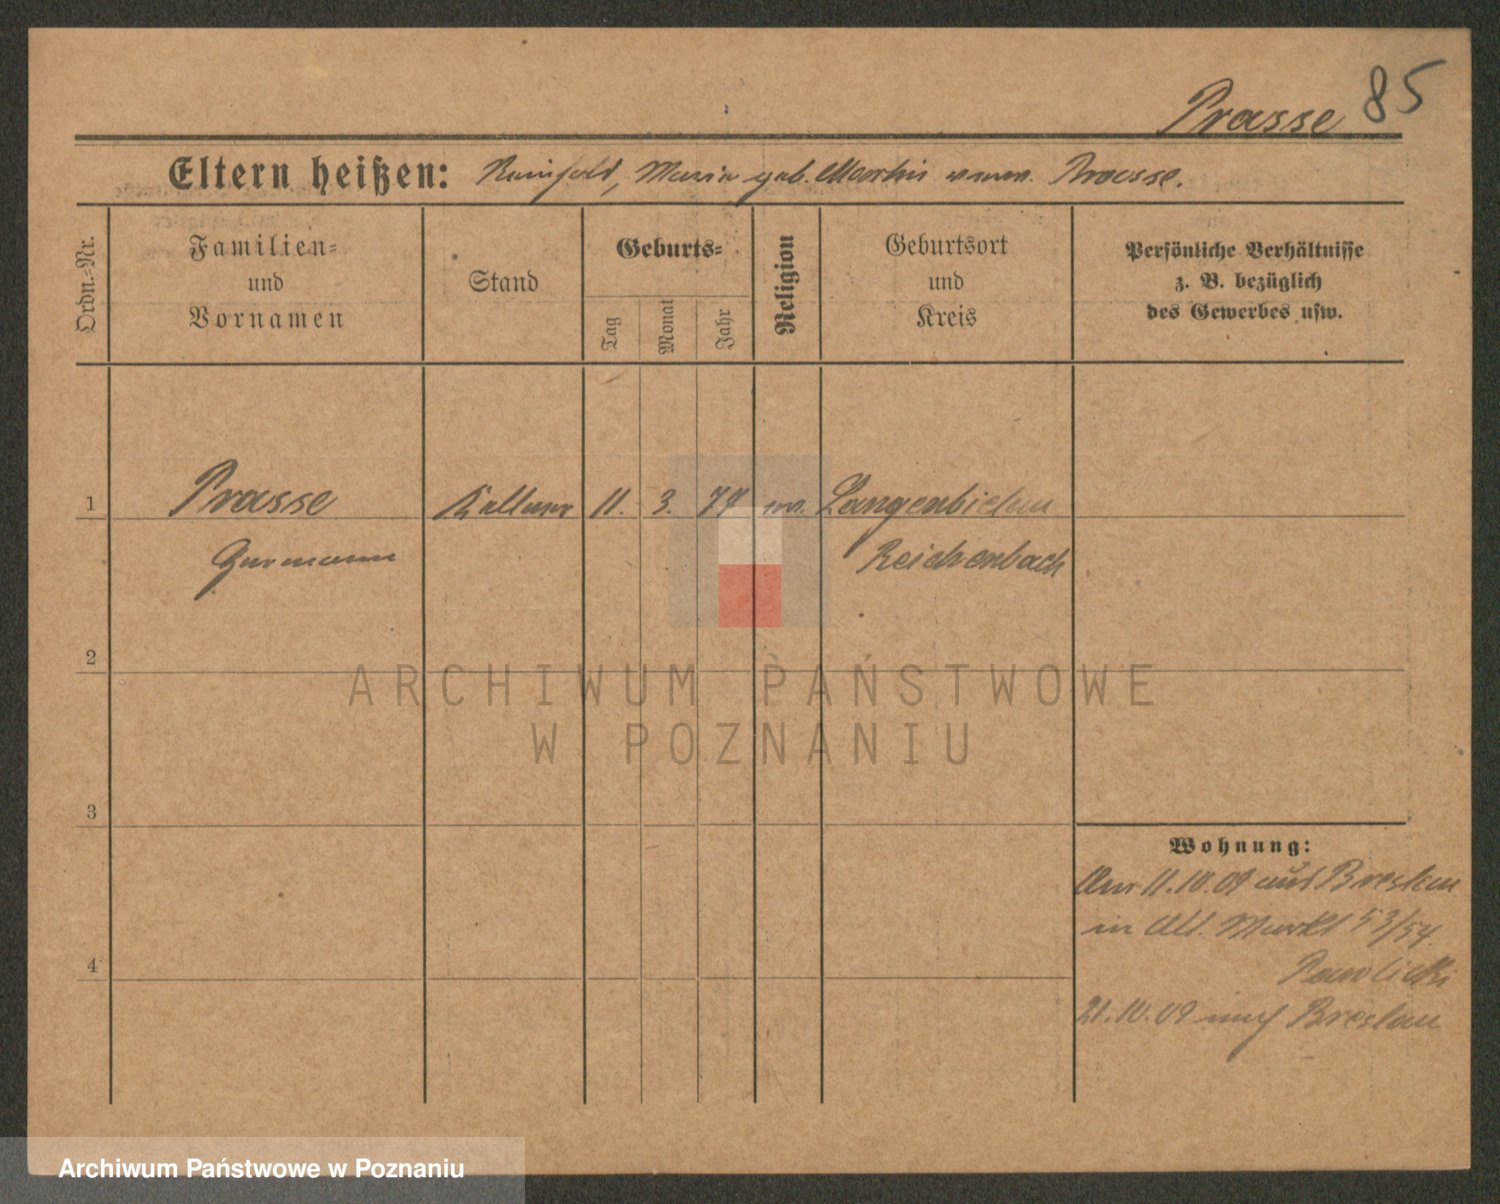 Prasse 85
Eltern heißen: Reinhold, Maria geb. verw. Prasse.
Ordn.-Nr.
Familien-
und
Vornamen
Stand
Geburts-
Tag
Monat
Jahr
Religion
Geburtsort
und
Kreis
Persönliche Verhältnisse
z. B. bezüglich
des Gewerbes usw.
1 Prasse Kellner 11. 3. ev. Langenbielau
Hermann Reichenbach
2
ARCHIWUM PAŃSTWOWE
W POZNANIU
3
Wohnung:
Am 11.10.09 aus Breslau
in Alt. Markt 53/54.
Pawlicki
21.10.09 nach Breslau
4
Archiwum Państwowe w Poznaniu